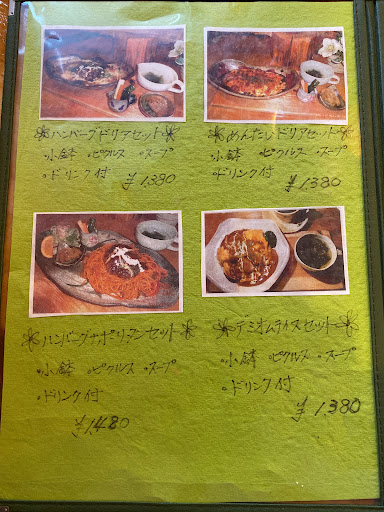 ハンバーグドリアセット
・小鉢 ・ピクルス ・スープ
・ドリンク付
¥1.380
めんたいドリアセット
・小鉢 ・ピクルス ・スープ
・ドリンク付
¥1380
ハンバーグナポリタンセット
・小鉢 ・ピクルス ・スープ
・ドリンク付
¥1,480
デミオムライスセット
・小鉢 ・ピクルス ・スープ
・ドリンク付
¥1.380